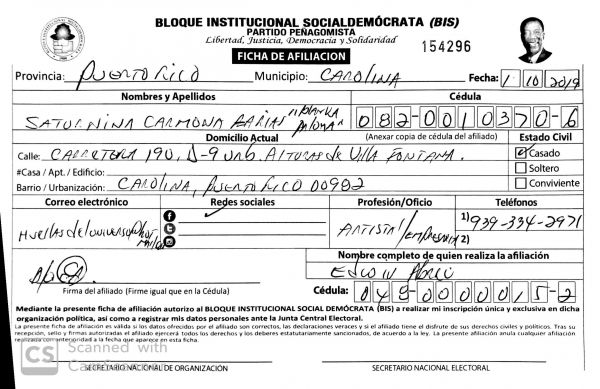 BLOQUE INSTITUCIONAL SOCIALDEMÓCRATA (BIS)
PARTIDO PEÑAGOMISTA
Libertad, Justicia, Democracia y Solidaridad
154296
FICHA DE AFILIACION
Provincia: PUERTO RICO Municipio: CAROLINA Fecha: 1 10 2019
Nombres y Apellidos Cédula
SATURNINA CARMONA ARIAS "BLANCA PALOMA" 082-0010370-6
Domicilio Actual (Anexar copia de cédula del afiliado) Estado Civil
Calle: CARRETERA 190, D-9 Urb. ALTURAS de Villa FONTANA. Casado
#Casa / Apt. / Edificio: Soltero
Barrio / Urbanización: CAROLINA, PUERTO RICO 00982 Conviviente
Correo electrónico Redes sociales Profesión/Oficio Teléfonos
Huellasdeluniverso@hotmail.com ARTISTA/empresaria 1) 939-334-2971
2)
Nombre completo de quien realiza la afiliación
EDWIN
Firma del afiliado (Firme igual que en la Cédula) Cédula: 049-0000015-2
Mediante la presente ficha de afiliación autorizo al BLOQUE INSTITUCIONAL SOCIAL DEMÓCRATA (BIS) a realizar mi inscripción única y exclusiva en dicha
organización política, así como a registrar mis datos personales ante la Junta Central Electoral.
La presente ficha de afiliación es válida si los datos ofrecidos por el afiliado son correctos, las declaraciones veraces y si el afiliado tiene el disfrute de sus derechos civiles y políticos. Tras su
recepción, sello y firmas autorizadas el afiliado ejercerá todos los derechos y los deberes estatutariamente sancionados, de acuerdo a la ley. La presente afiliación anula cualquier afiliación
realizada con anterioridad a la fecha que aparece en esta ficha.
CS Scanned with
SECRETARIO NACIONAL DE ORGANIZACIÓN SECRETARIO NACIONAL ELECTORAL